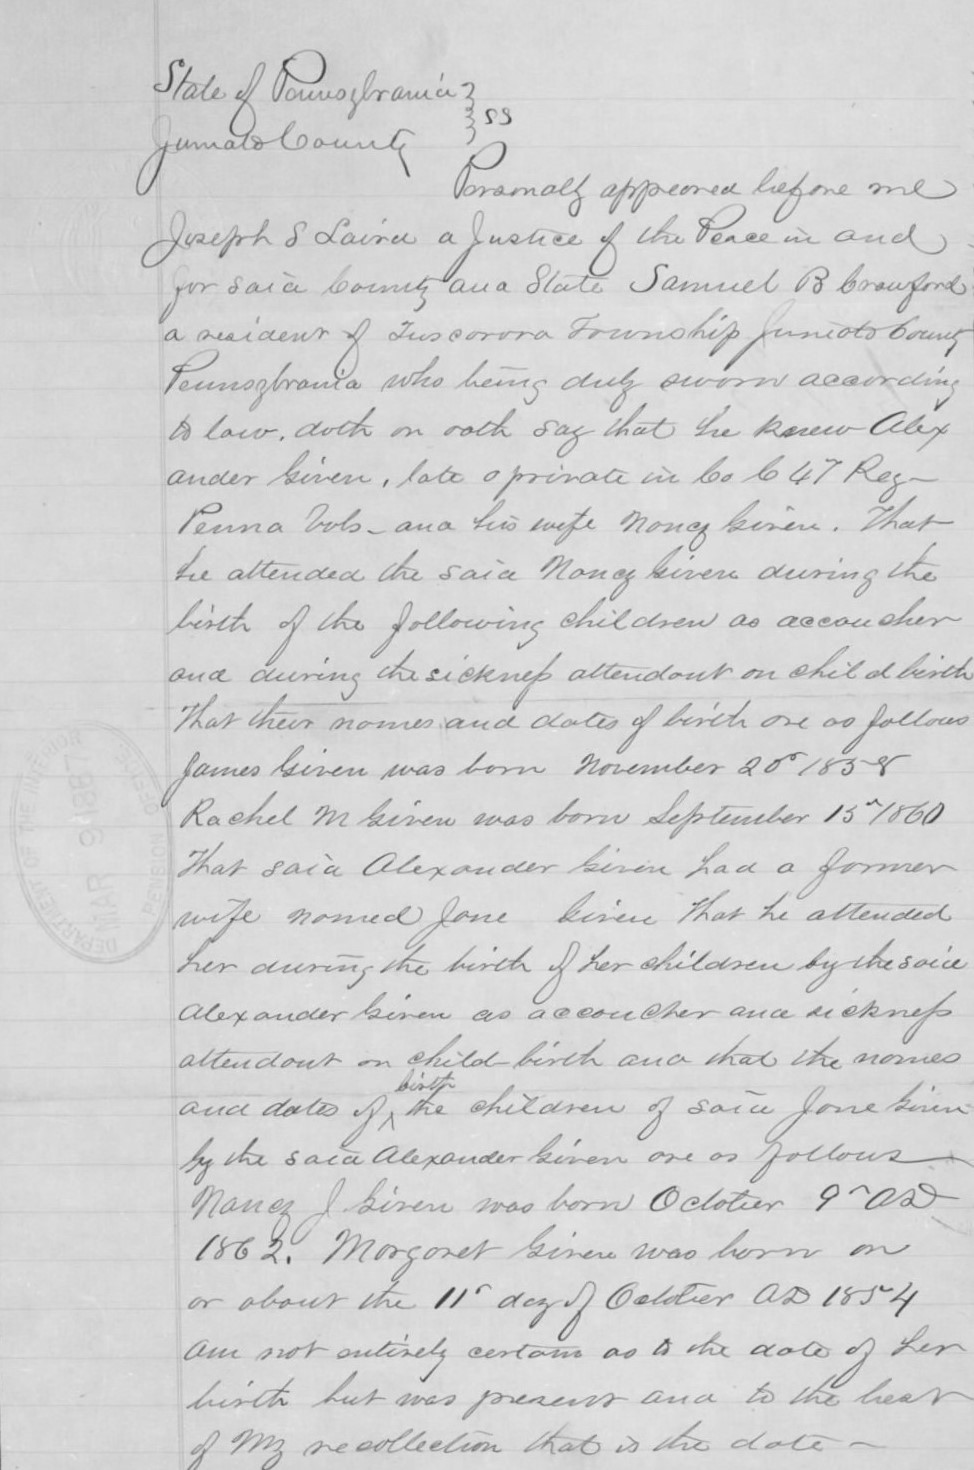 State of Pennsylvania } ss
Juniata County
Personally appeared before me
Joseph S Laird a Justice of the Peace in and
for said County and State Samuel B Crawford
a resident of Tuscorora Township Juniata County
Pennsylvania who being duly sworn according
to law, doth on oath say that he knew Alex
ander Given, late a private in Co C 47 Reg-
Penna Vols - and his wife Nancy Given. That
he attended the said Nancy Given during the
birth of the following children as accoucher
and during the sickness attendant on child birth
That their names and dates of birth are as follows
James Given was born November 20" 1858
Rachel M Given was born September 15" 1860
That said Alexander Given had a former
wife named Jane Given That he attended
her during the birth of her children by the said
Alexander Given as accoucher and sickness
attendant on child-birth and that the names
and dates of birth the children of said Jane Given
by the said Alexander Given are as follows
Nancy J. Given was born October 9" AD
1862. Margaret Given was born on
or about the 11" day of October AD 1854
am not entirely certain as to the date of her
birth but was present and to the best
of my recollection that is the date -
DEPARTMENT OF THE INTERIOR
MAR 9 1867
PENSION OFFICE